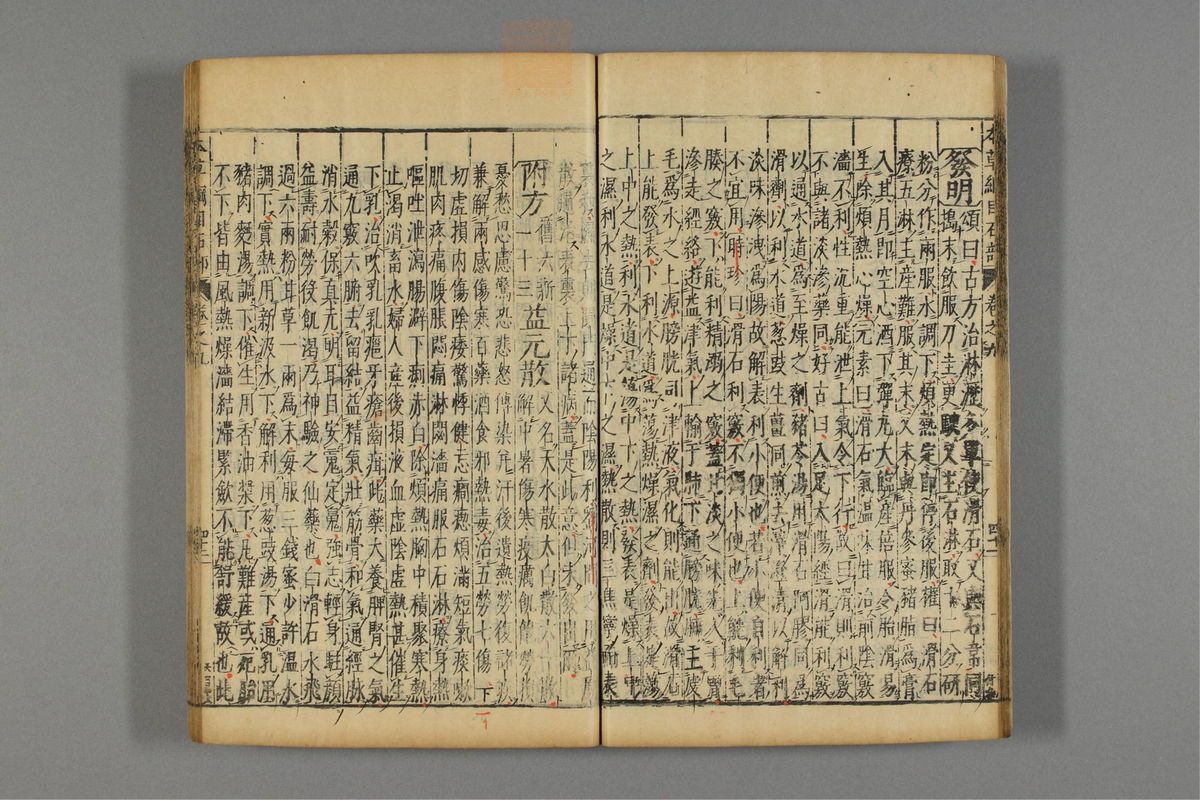 本草綱目石部 卷之九
發明 頌曰古方治淋瀝多單使滑石又與石韋同
搗末飲服刀圭更駛又主石淋取十二分研
粉分作兩服水調下煩熱定即停後服權曰滑石
療五淋主産難服其末又末與丹參蜜猪脂為膏
入其月即空心酒下彈丸大臨産倍服令胎滑易
生除煩熱心燥元素曰滑石氣温味甘治前陰竅
濇不利性沉重能泄上氣令下行故曰滑則利竅
不與諸淡滲藥同好古曰入足太陽經滑能利竅
以通水道為至燥之劑猪苓湯用滑石阿膠同為
滑劑以利水道葱豉生薑同煎去滓澄清以解利
淡味滲洩為陽故解表利小便也若小便自利者
不宜用時珍曰滑石利竅不獨小便也上能利毛
腠之竅下能利精溺之竅蓋甘淡之味先入于胃
滲走經絡遊益津氣上輸于肺下通膀胱肺主皮
毛為水之上源膀胱司津液氣化則能出故滑石
上能發表下利水道為蕩熱燥濕之劑發表是蕩
上中之熱利水道是蕩中下之熱發表是燥上中
之濕利水道是燥中下之濕熱散則三焦寧而表
附方 舊六新一十三 益元散 又名天水散太白散六一散
解中暑傷寒疫癘飢飽勞損
憂愁思慮驚恐悲怒傳染并汗後遺熱勞復諸疾
兼解兩感傷寒百藥酒食邪熱毒治五勞七傷一
切虚損内傷陰痿驚悸健忘癎瘈煩滿短氣痰嗽
肌肉疼痛腹脹悶痛淋閟濇痛服石石淋療身熱
嘔吐泄瀉腸澼下痢赤白除煩熱胸中積聚寒熱
止渇消畜水婦人産後損液血虚陰虚熱甚催生
下乳治吹乳乳癰牙瘡齒疳此藥大養脾腎之氣
通九竅六腑去留結益精氣壯筋骨和氣通經脉
消水穀保眞元明耳目安魂定魄強志輕身駐顔
益壽耐勞役飢渇乃神驗之仙藥也白滑石水飛
過六兩粉甘草一兩為末每服三錢蜜少許温水
調下實熱用新汲水下解利用葱豉湯下通乳用
猪肉麪湯調下催生用香油漿下凡難産或死胎
不下皆由風熱燥濇結滯緊歛不能舒緩故也此